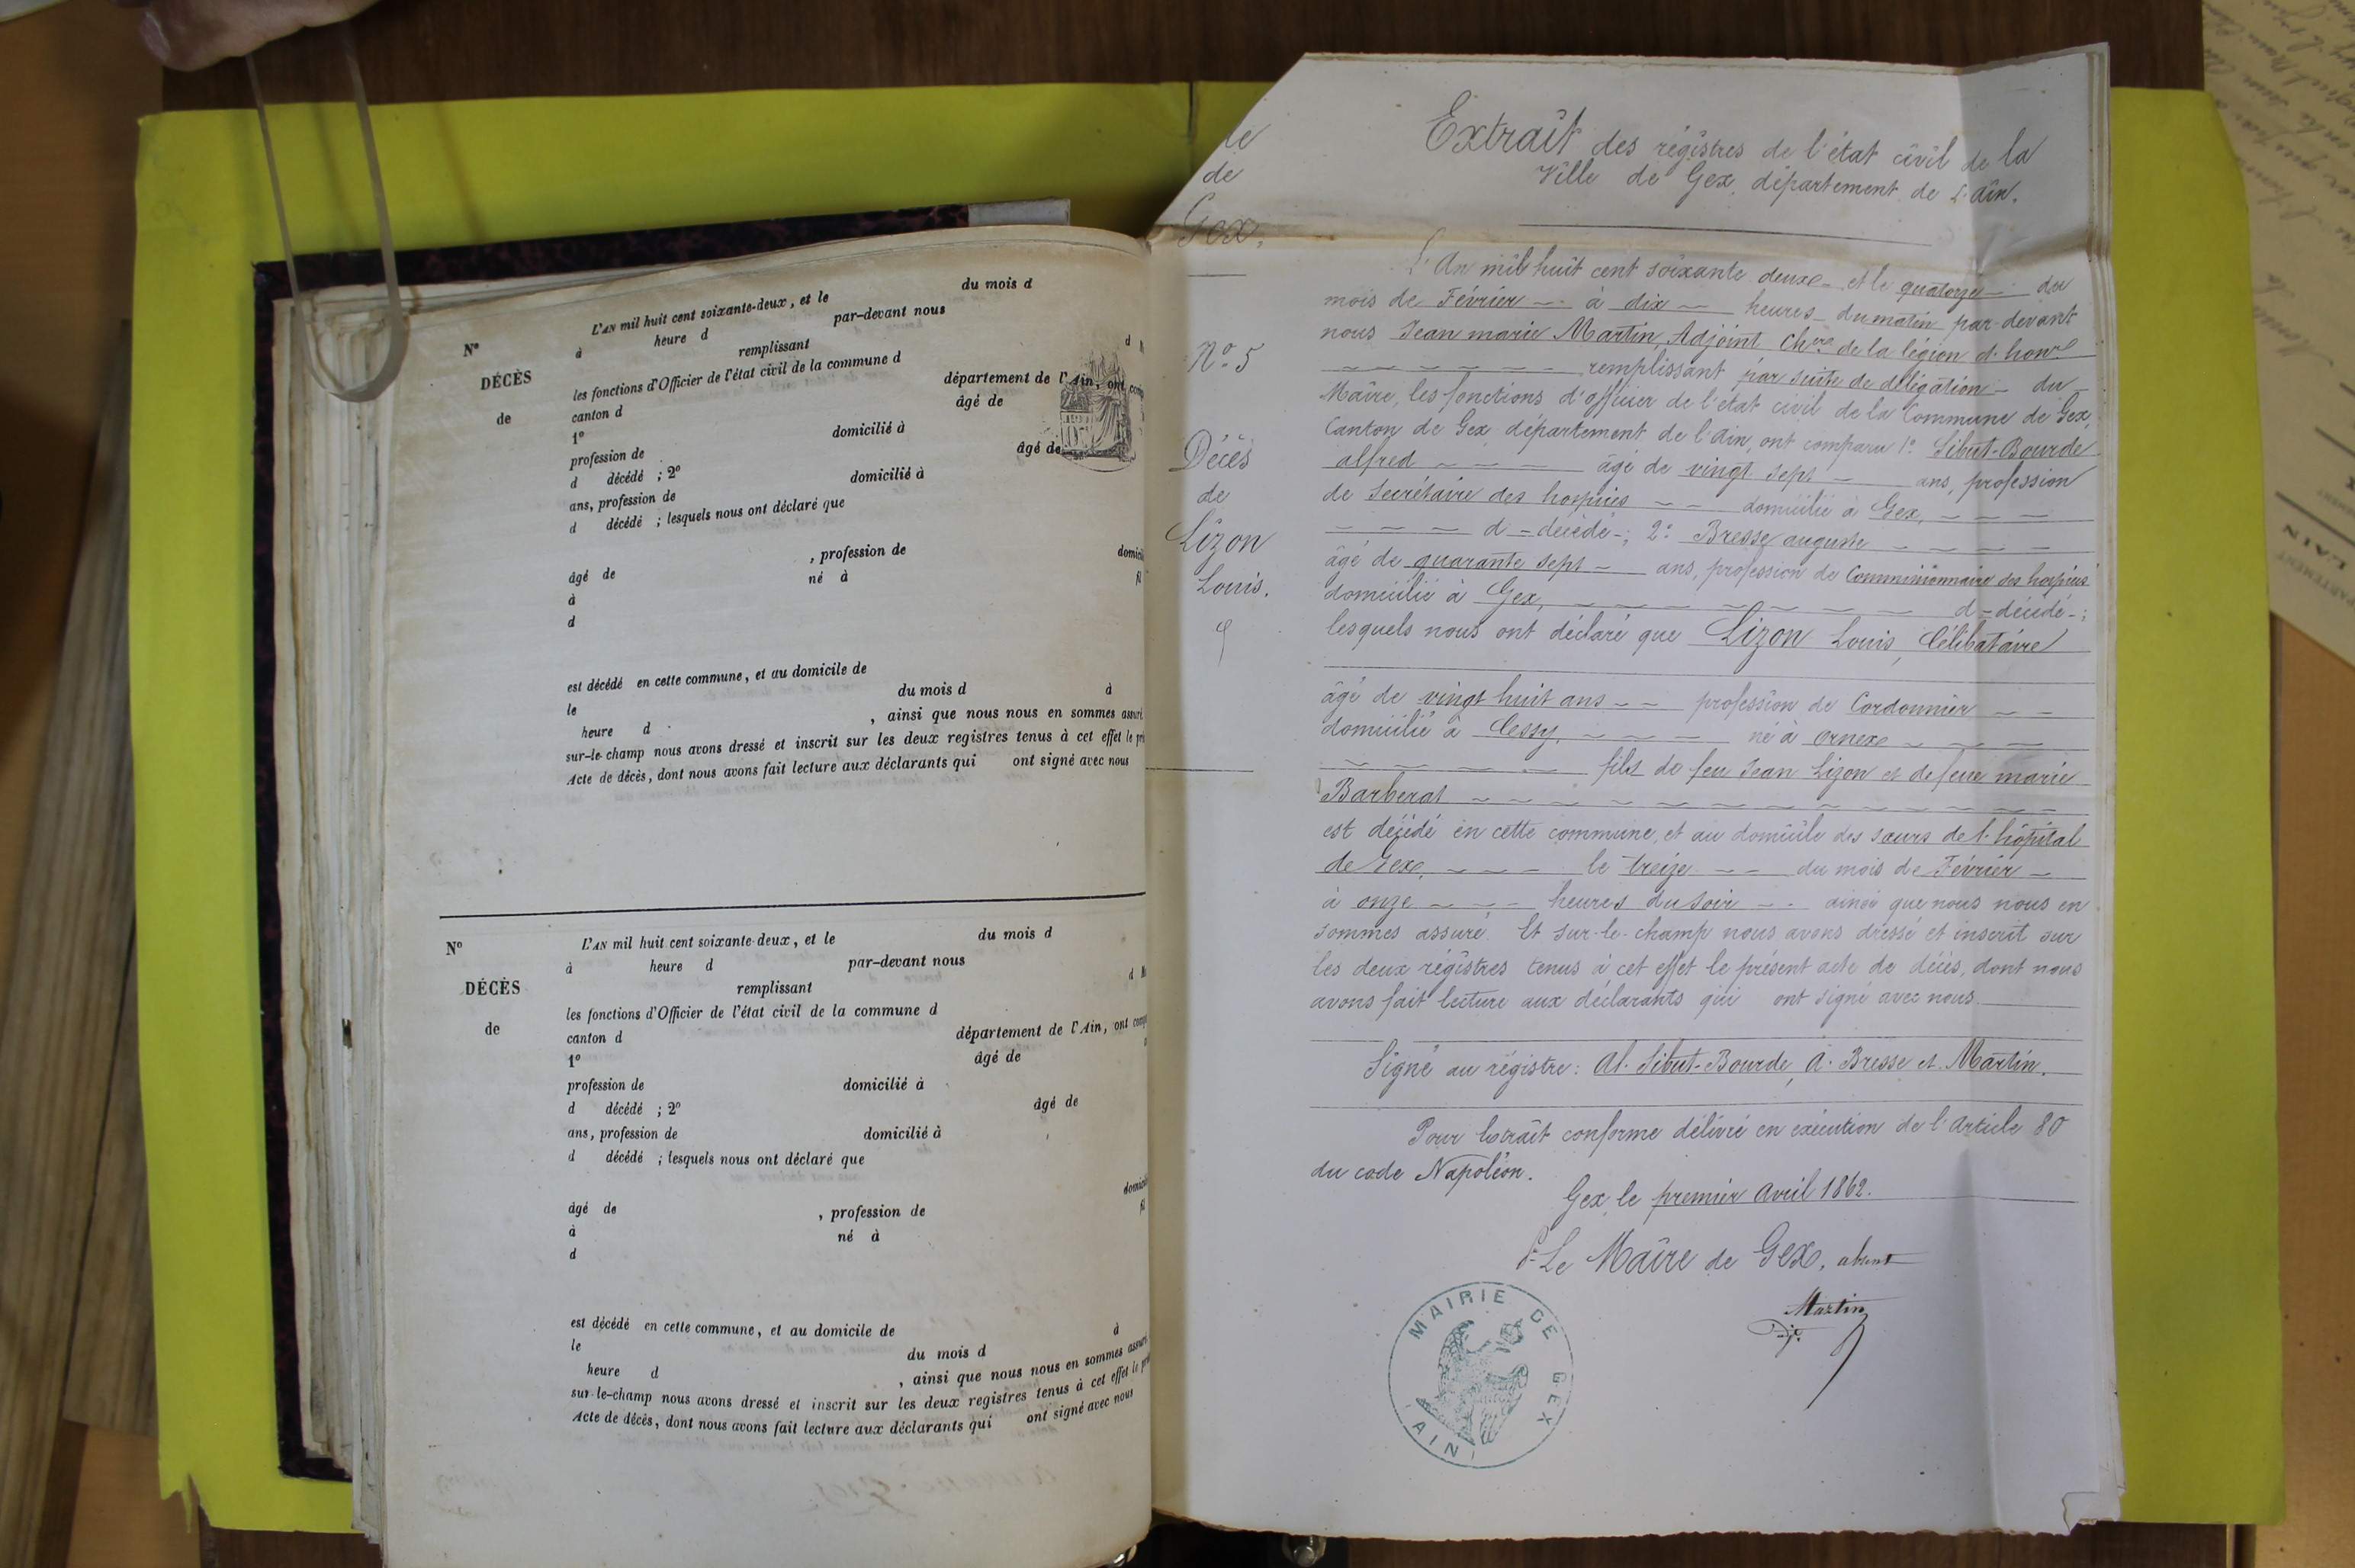 L'AN mil huit cent soixante-deux, et le du mois d
à heure d par-devant nous
remplissant d M
les fonctions d'Officier de l'état civil de la commune d
canton d département de l'Ain, ont com
1º âgé de
profession de domicilié à
d décédé ; 2º âgé de
ans, profession de domicilié à
d décédé ; lesquels nous ont déclaré que
âgé de , profession de domicili
à né à fil
d
est décédé en cette commune, et au domicile de
le du mois d à
heure d , ainsi que nous nous en sommes assuré
sur-le-champ nous avons dressé et inscrit sur les deux registres tenus à cet effet le pré
Acte de décès, dont nous avons fait lecture aux déclarants qui ont signé avec nous
Nº
DÉCÈS
de
L'AN mil huit cent soixante-deux, et le du mois d
à heure d par-devant nous
remplissant d M
les fonctions d'Officier de l'état civil de la commune d
canton d département de l'Ain, ont comp
1º âgé de
profession de domicilié à
d décédé ; 2º âgé de
ans, profession de domicilié à
d décédé ; lesquels nous ont déclaré que
âgé de , profession de domicil
à né à fil
d
est décédé en cette commune, et au domicile de
le du mois d à
heure d , ainsi que nous nous en sommes assuré
sur-le-champ nous avons dressé et inscrit sur les deux registres tenus à cet effet le pré
Acte de décès, dont nous avons fait lecture aux déclarants qui ont signé avec nous
Nº
DÉCÈS
de
de
Gex.
Nº 5
Décès
de
Lizon
Louis.
Extrait des régistres de l'état civil de la
Ville de Gex, département de l'Ain.
L'An mil huit cent soixante deux et le quatorze du
mois de Février à dix heures du matin par-devant
nous Jean marie Martin, Adjoint Cher de la légion d'honr
remplissant par suite de délégation du
Maire, les fonctions d'officier de l'état civil de la Commune de Gex,
Canton de Gex, département de l'Ain, ont comparu 1º Sibut-Bourde
alfred âgé de vingt sept ans, profession
de Secrétaire des hospices domicilié à Gex,
d décédé ; 2º Bresse auguste
âgé de quarante sept ans, profession de Commissionnaire des hospices
domicilié à Gex, d décédé ;
lesquels nous ont déclaré que Lizon Louis, Célibataire
âgé de vingt huit ans profession de Cordonnier
domicilié à Cessy, né à ornex
fils de feu Jean Lizon et de feue marie
Barberat
est décédé en cette commune, et au domicile des sœurs de l'hôpital
de Gex, le treize du mois de Février
à onze heures du soir ainsi que nous nous en
sommes assuré. Et sur-le-champ nous avons dressé et inscrit sur
les deux régistres tenus à cet effet le présent acte de décès, dont nous
avons fait lecture aux déclarants qui ont signé avec nous.
Signé au régistre : Al. Sibut-Bourde, A. Bresse et Martin.
Pour Extrait conforme délivré en exécution de l'Article 80
du code Napoléon.
Gex, le premier Avril 1862.
Pr Le Maire de Gex, absent
Martin
Adjt
MAIRIE DE GEX
(AIN)